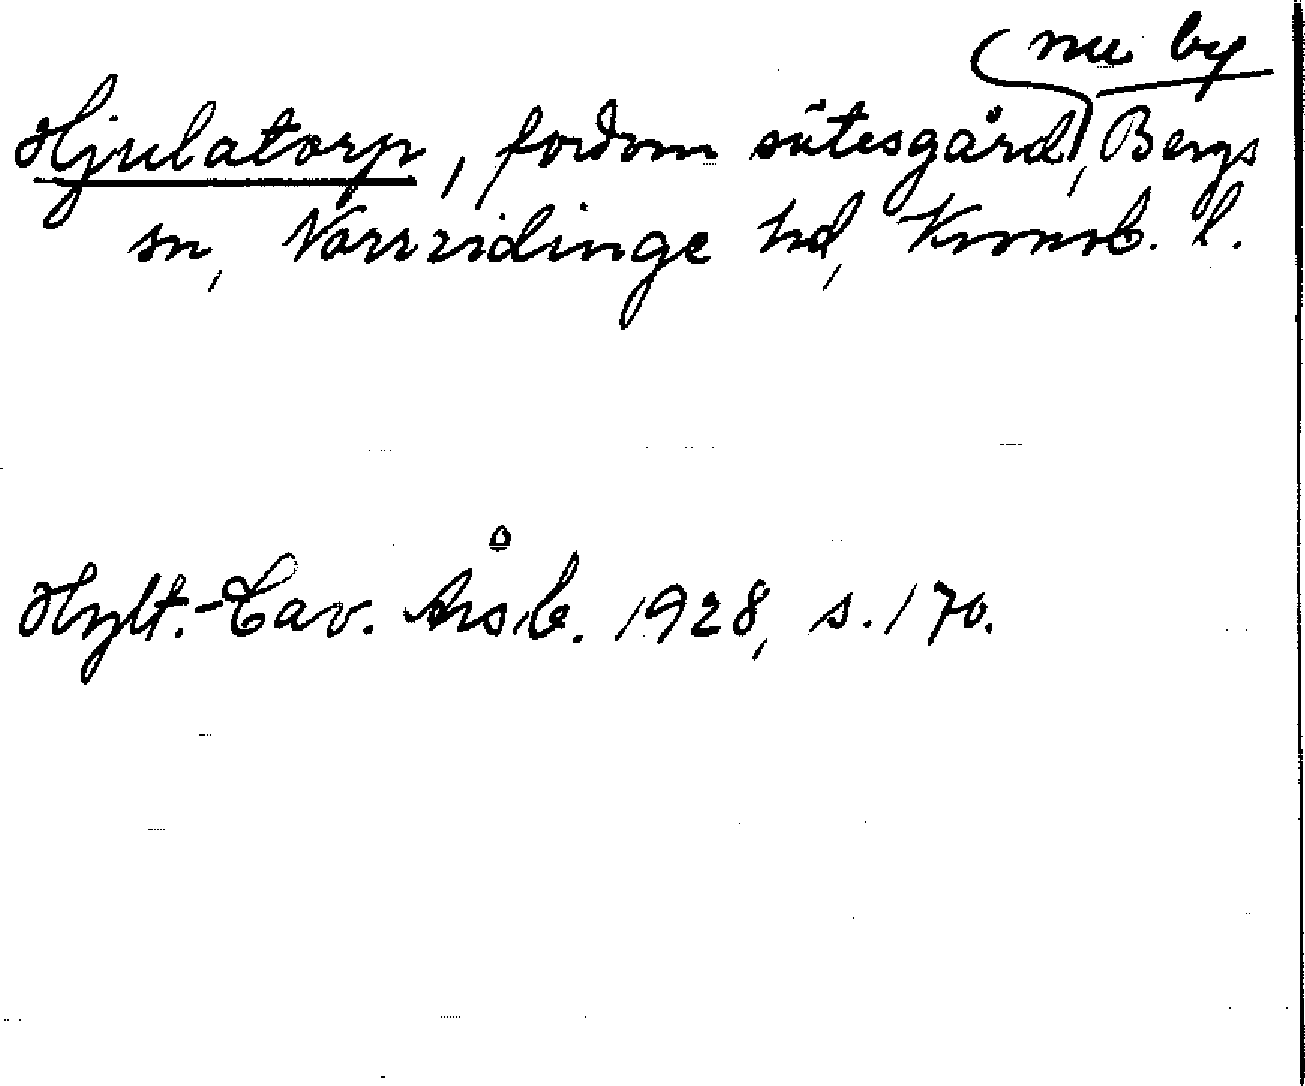 (nu by
Hjulatorp, fordom sätesgård), Bergs
sn, Norrvidinge hd, Kronob. l.
Hylt.-Cav. Årsb. 1928, s. 170.